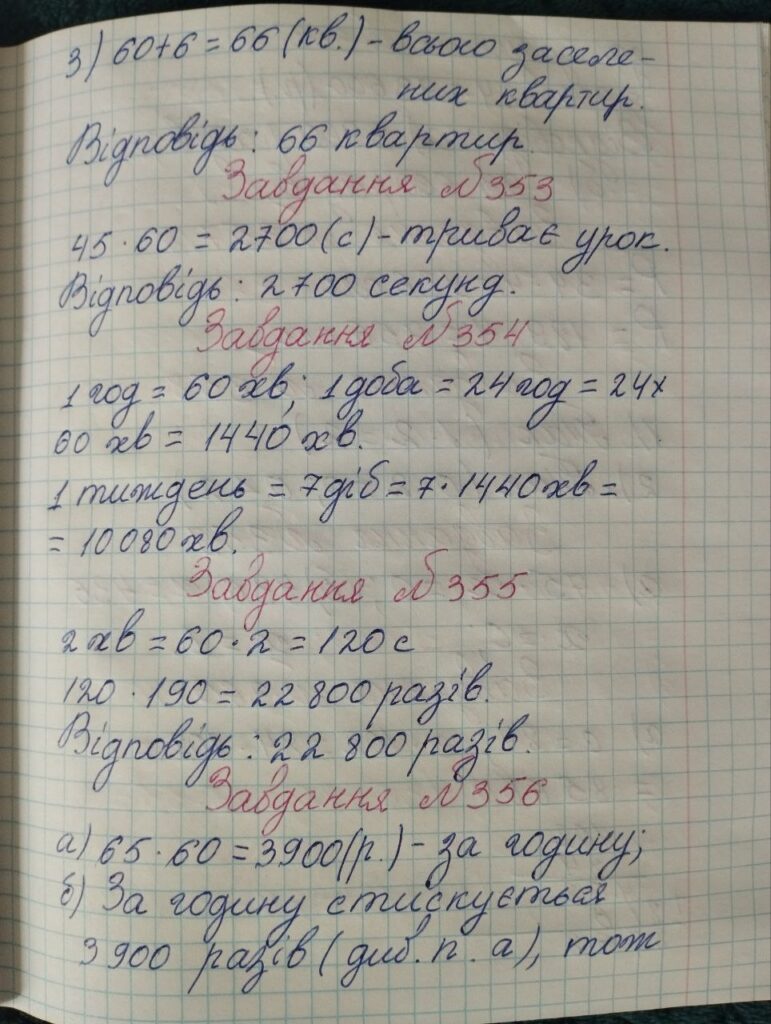 3) 60+6 = 66 (кв.) - всього заселе-
них квартир.
Відповідь: 66 квартир.
Завдання №353
45 · 60 = 2700 (с) - триває урок.
Відповідь: 2700 секунд.
Завдання №354
1 год = 60 хв; 1 доба = 24 год = 24×
60 хв = 1440 хв.
1 тиждень = 7 діб = 7 · 1440 хв =
= 10 080 хв.
Завдання №355
2 хв = 60 · 2 = 120 с
120 · 190 = 22 800 разів.
Відповідь: 22 800 разів.
Завдання №356
а) 65 · 60 = 3900 (р.) - за годину;
б) За годину стискується
3 900 разів (див. п. а), тож